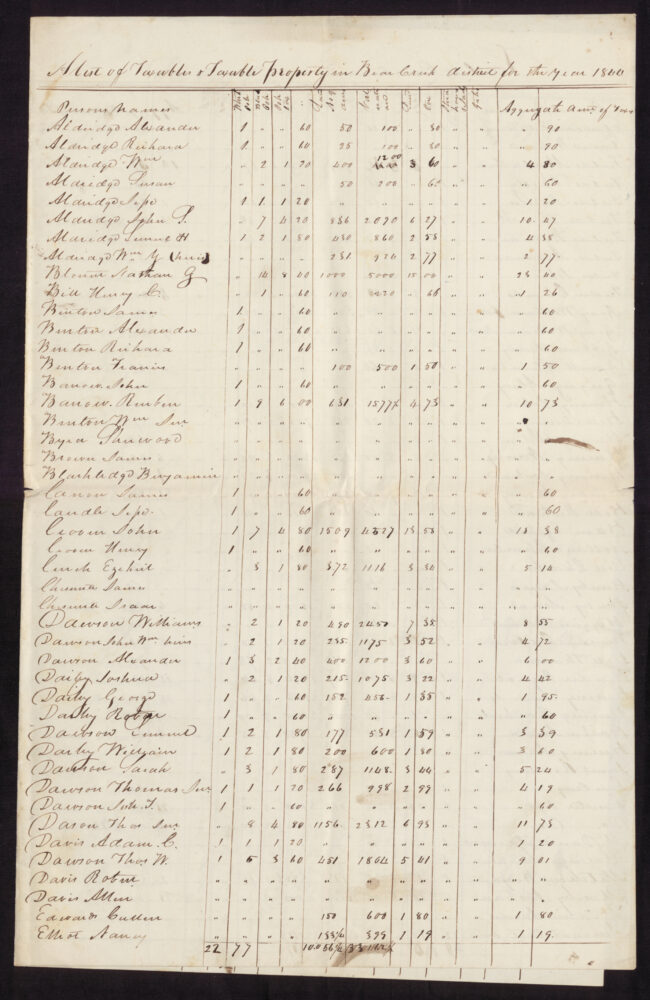 A list of Taxables & Taxable property in Bear Creek district for the Year 1840
Persons Names Aggregate Amt. of Taxes
Aldridge Alexander 1 " " 60 50 100 " 30 " " " 90
Aldridge Richard 1 " " 60 25 100 " 30 " " " 90
Aldridge Wm " 2 1 20 400 1200 3 60 " " 4 80
Aldredge Susan " " " " 50 200 " 60 " " " 60
Aldridge Jesse 1 1 1 20 " " " " " " 1 20
Aldridge John S. " 7 4 20 836 2090 6 27 " " 10 47
Aldridge Samuel H 1 2 1 80 430 860 2 58 " " 4 38
Aldridge Wm Y (heirs) " " " " 231 924 2 77 " " 2 77
Blount Nathan G " 14 8 40 1000 5000 15 00 " " 23 40
Bill Henry C. " 1 " 60 110 220 " 66 " " 1 26
Benton James 1 " " 60 " " " " " " " 60
Benton Alexander 1 " " 60 " " " " " " " 60
Benton Richard 1 " " 60 " " " " " " " 60
Benton Francis " " " " 100 500 1 50 " " 1 50
Barrow John 1 " " 60 " " " " " " " 60
Barrow Reuben 1 9 6 00 631 1577½ 4 73 " " 10 73
Benton Wm Senr " " " " " " " " " " " "
Byrd Sherwood " " " " " " " " " " "
Brown James " " " " " " " " " " " "
Blackledge Benjamin " " " " " " " " " " " "
Canon James 1 " " 60 " " " " " " " 60
Caudle Jesse 1 " " 60 " " " " " " " 60
Croom John 1 7 4 80 1509 4527 13 58 " " 18 38
Croom Henry 1 " " 60 " " " " " " " 60
Curch Ezekiel " 3 1 80 372 1116 3 34 " " 5 14
Chesnutt James " " " " " " " " " " " "
Chesnutt Isaac " " " " " " " " " " " "
Dawson Williams " 2 1 20 490 2450 7 35 " " 8 55
Dawson John Wm heirs " 2 1 20 235 1175 3 52 " " 4 72
Dawson Alexander 1 3 2 40 400 1200 3 60 " " 6 00
Darby Joshua " 2 1 20 215 1075 3 22 " " 4 42
Darby George 1 " " 60 152 456 1 35 " " 1 95
Darby Roger 1 " " 60 " " " " " " " 60
Dawson Emmel 1 2 1 80 177 531 1 59 " " 3 39
Darby William 1 2 1 80 200 600 1 80 " " 3 60
Dawson Sarah " 3 1 80 287 1148 3 44 " " 5 24
Dawson Thomas Junr 1 1 1 20 266 998 2 99 " " 4 19
Dawson Joh. T. 1 " " 60 " " " " " " " 60
Dason Thos Senr " 8 4 80 1156 2312 6 93 " " 11 73
Davis Adam C. 1 1 1 20 " " " " " " 1 20
Dawson Thos W. 1 5 3 60 451 1804 5 41 " " 9 01
Davis Robin " " " " " " " " " " " "
Davis Allen " " " " " " " " " " " "
Edwards Cullen " " " " 150 600 1 80 " " 1 80
Elliot Nancy " " " " 133¼ 399 1 19 " " 1 19
22 77